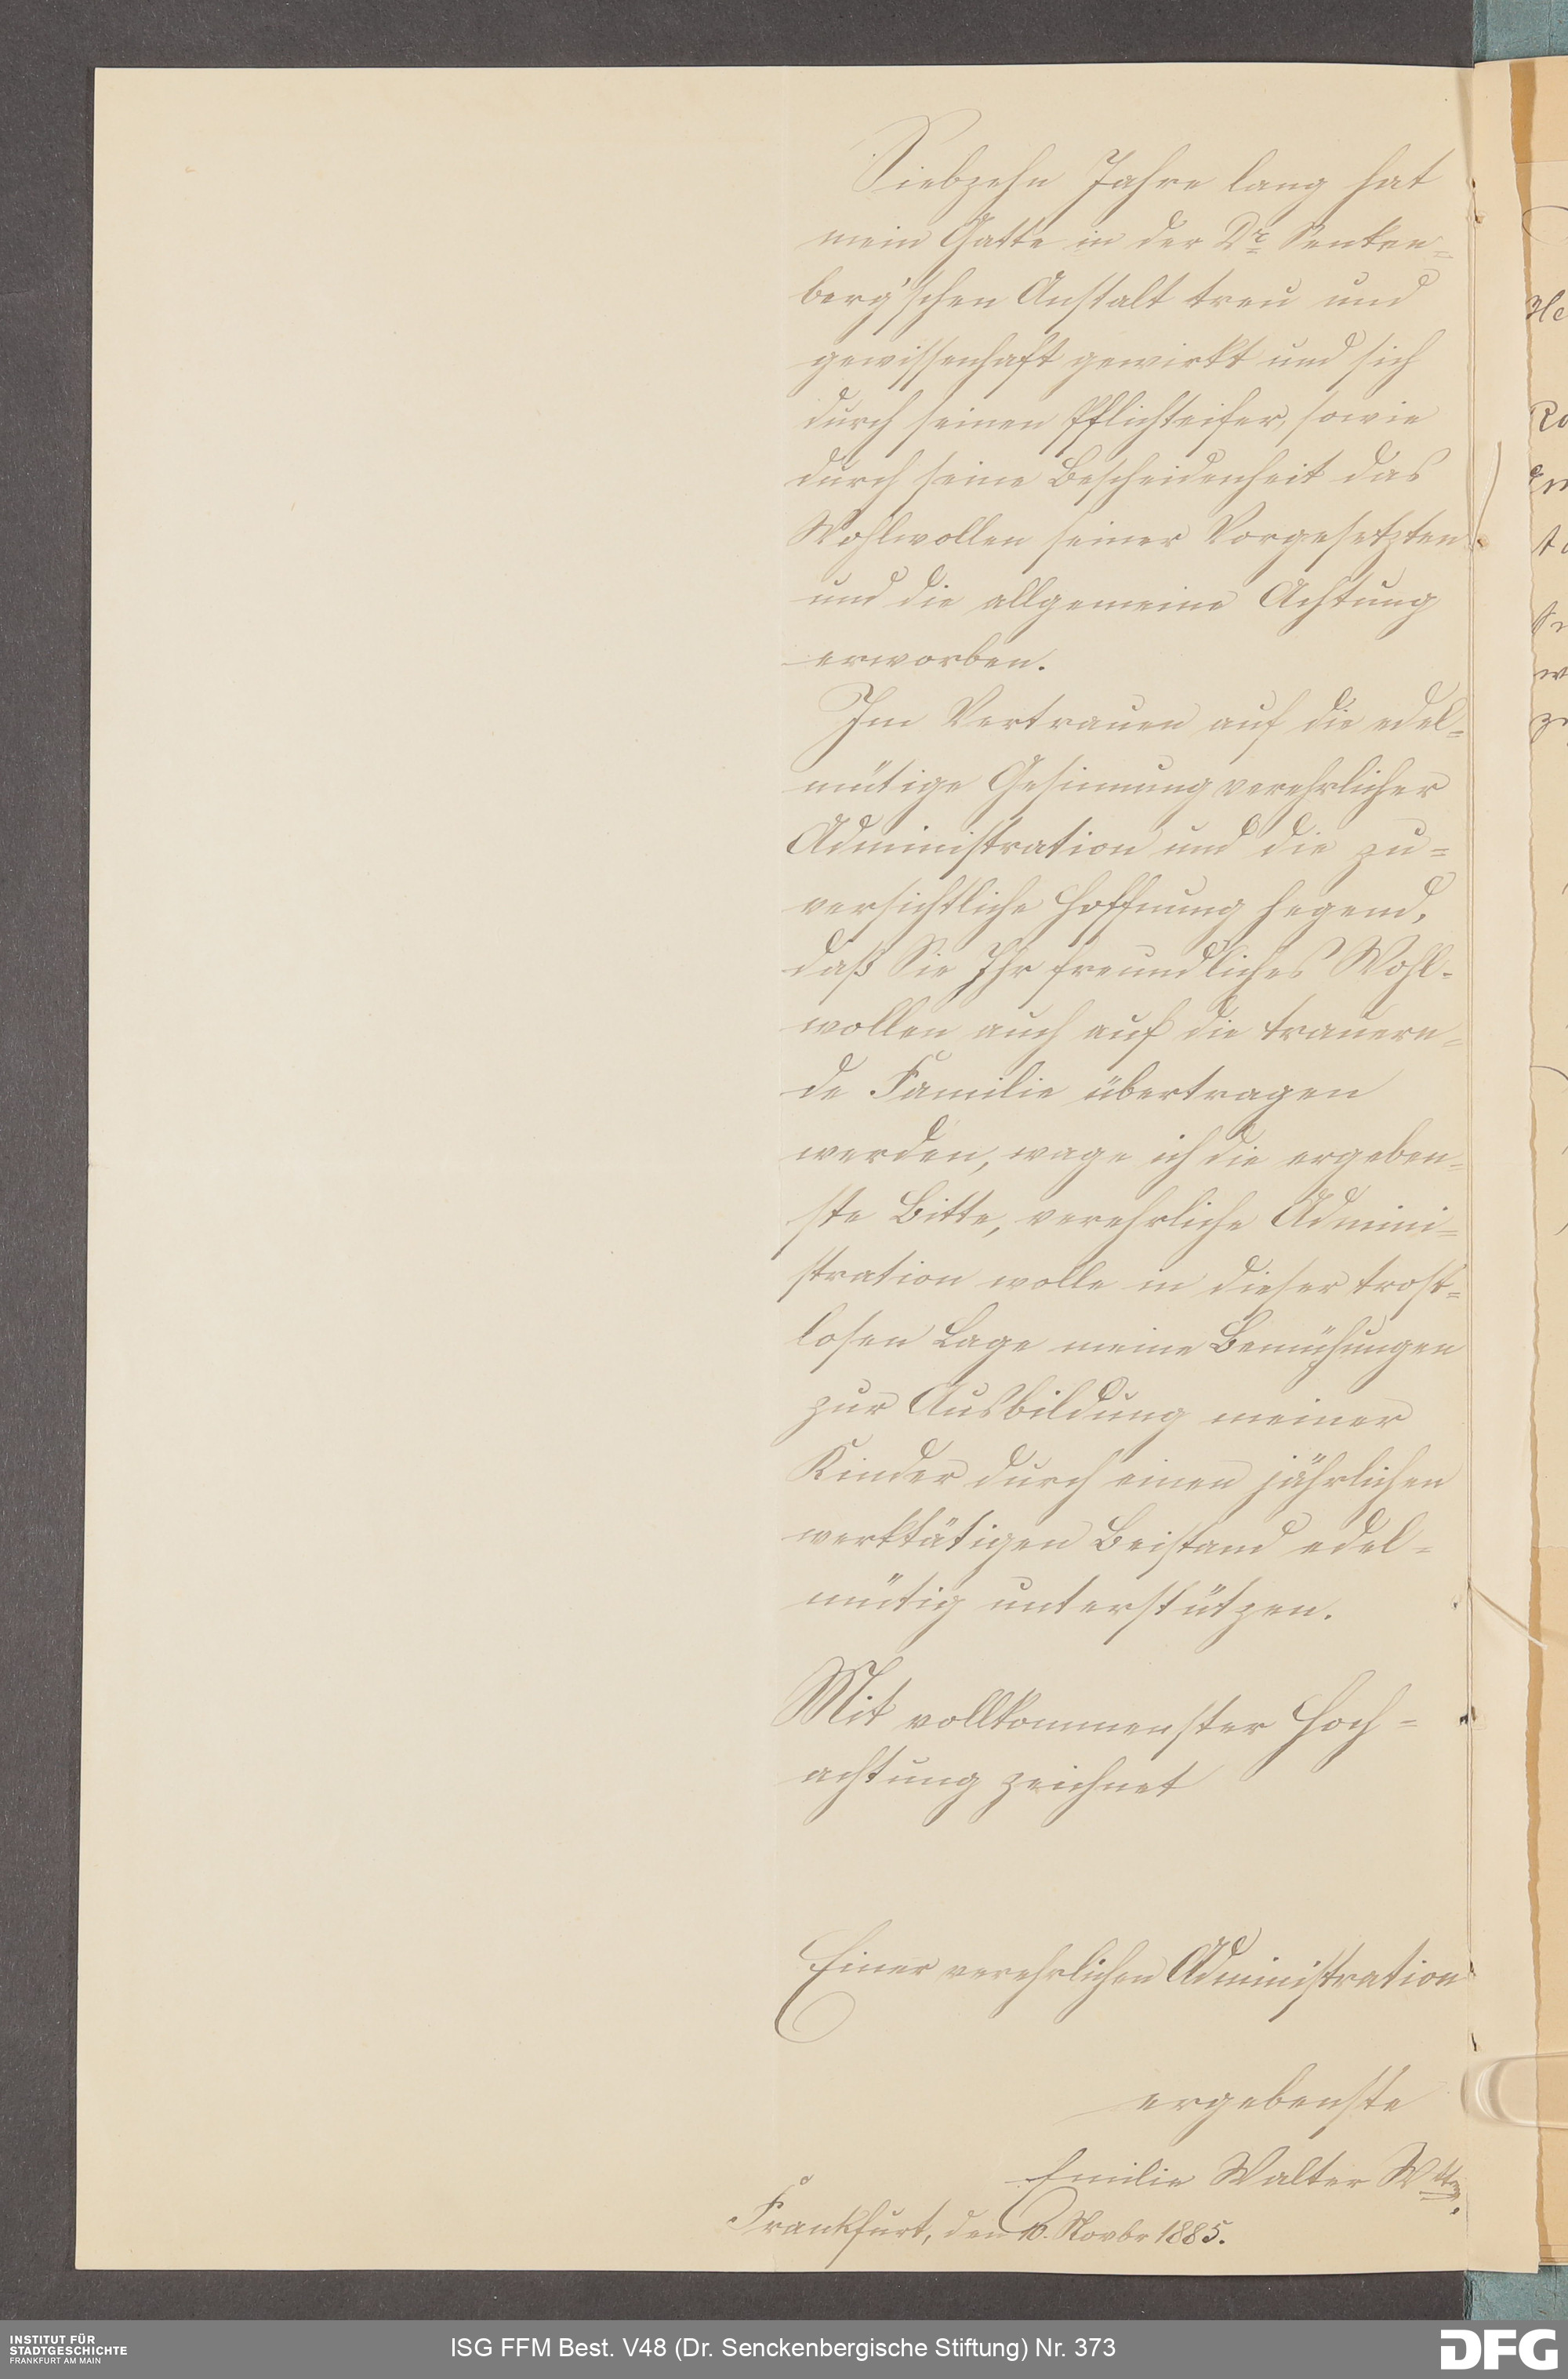 Siebzehn Jahre lang hat
mein Gatte in der Dr Senken=
berg'schen Anstalt treu und
gewissenhaft gewirkt und sich
durch seinen Pflichteifer, sowie
durch seine Bescheidenheit das
Wohlwollen seiner Vorgesetzten
und die allgemeine Achtung
erworben.
Im Vertrauen auf die edel=
mütige Gesinnung verehrlicher
Administration und die zu=
versichtliche Hoffnung hegend,
daß Sie Ihr freundliches Wohl-
wollen auch auf die trauern=
de Familie übertragen
werden, wage ich die ergeben=
ste Bitte, verehrliche Admini=
stration wolle in dieser trost=
losen Lage meine Bemühungen
zur Ausbildung meiner
Kinder durch einen jährlichen
werktätigen Beistand edel=
mütig unterstützen.
Mit vollkommenster Hoch=
achtung zeichnet
Einer verehrlichen Administration
ergebenste
Emilie Walter Wttw.
Frankfurt, den 10. Novbr 1885.
INSTITUT FÜR
STADTGESCHICHTE
FRANKFURT AM MAIN
ISG FFM Best. V48 (Dr. Senckenbergische Stiftung) Nr. 373
DFG